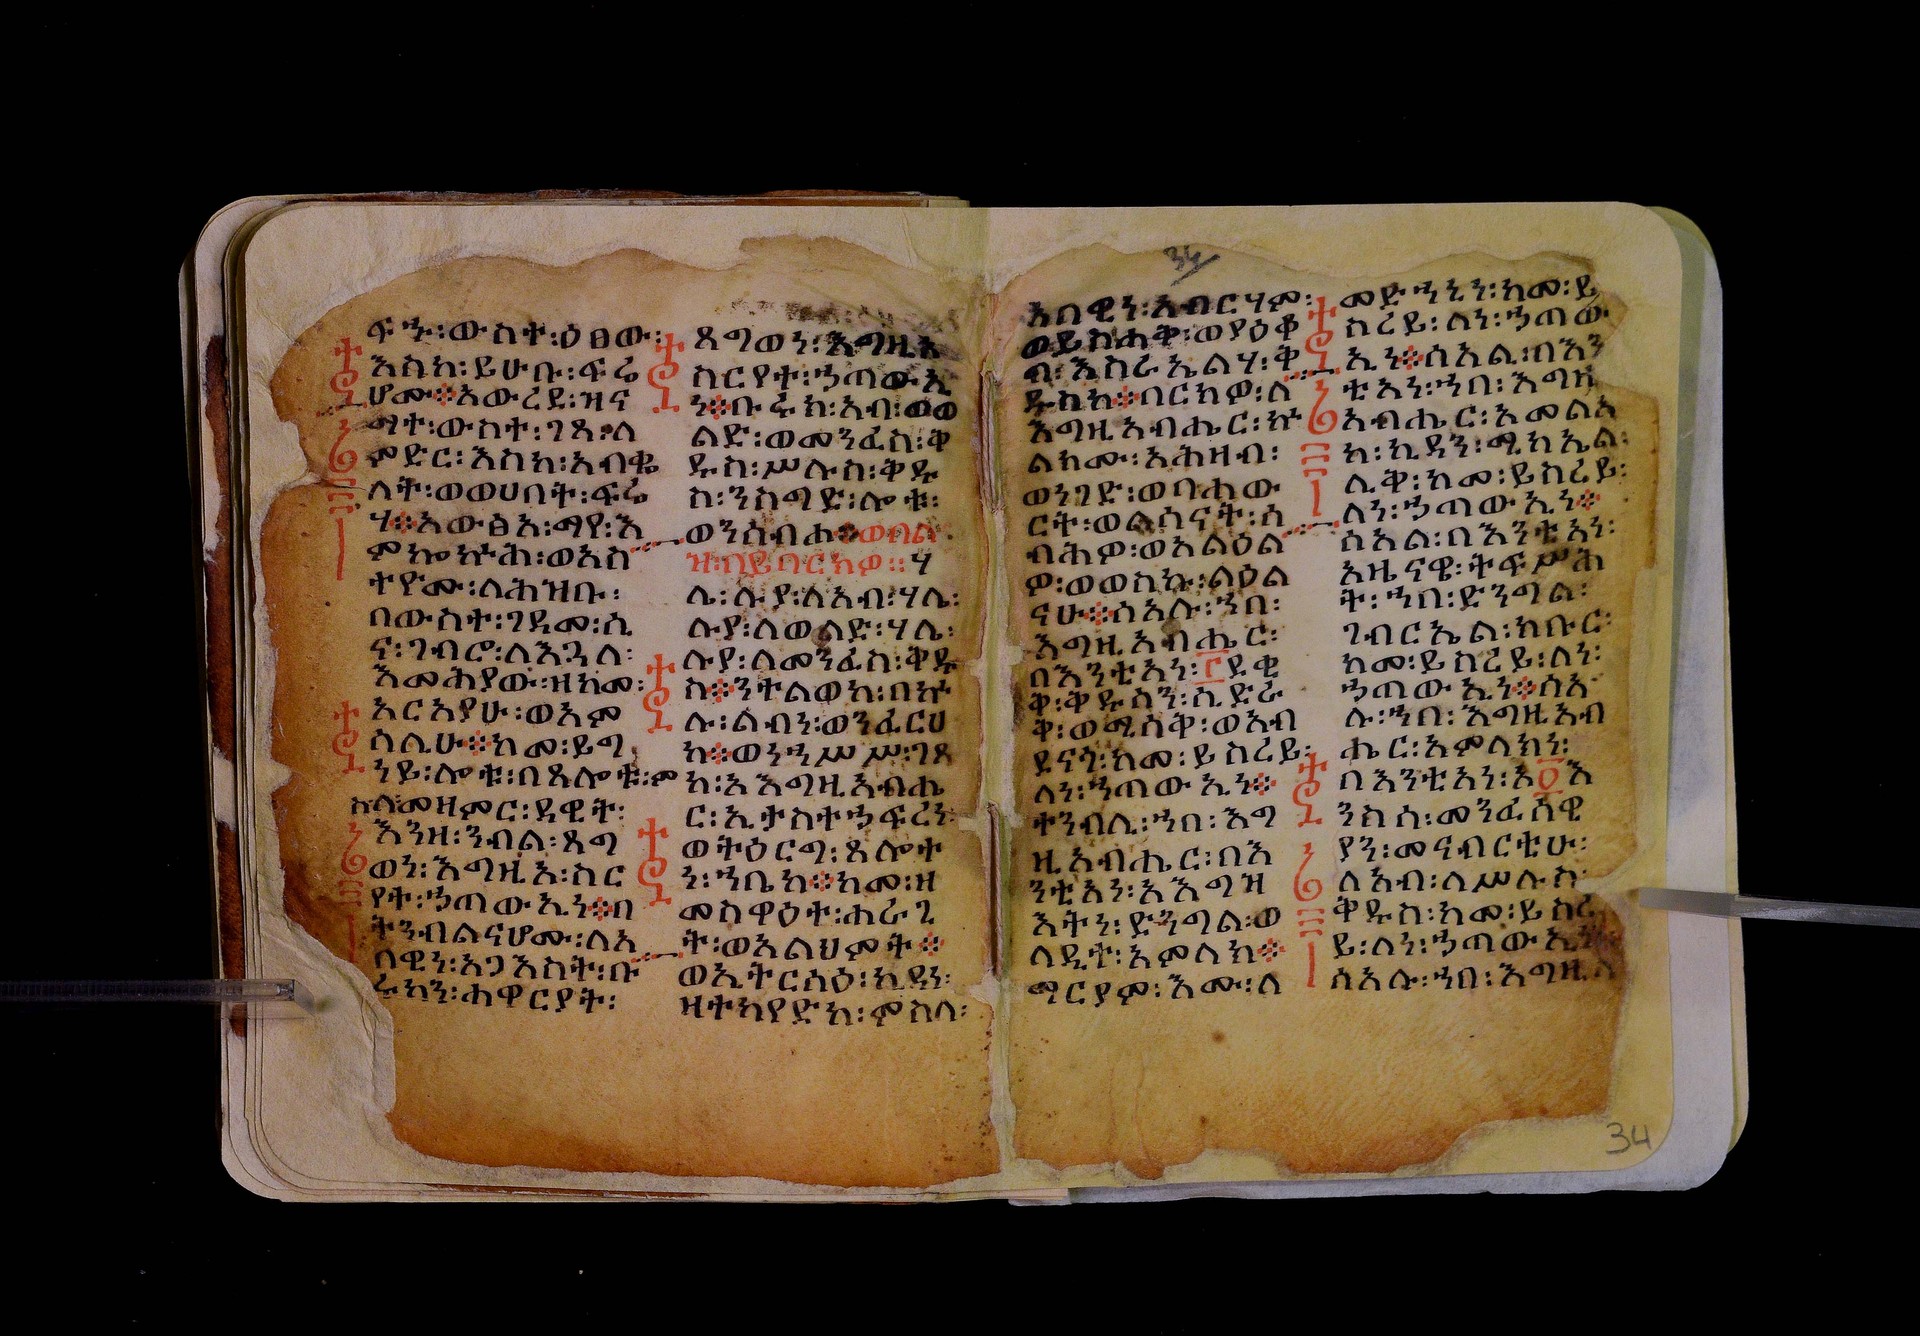 ፍኑ፡ውስተ፡ዕፀው፡
እስከ፡ይሁቡ፡ፍሬ
ሆሙ፡አውረደ፡ዝና
ማተ፡ውስተ፡ገጸ፡ለ
ምድር፡እስከ፡አብቈ
ለት፡ወወሀበት፡ፍሬ
ሃ፡አውፅአ፡ማየ፡እ
ምኰኵሕ፡ወአስ
ተዮሙ፡ለሕዝቡ፡
በውስተ፡ገዳመ፡ሲ
ና፡ገብሮ፡ለእጓለ፡
እመሕያው፡ዘከመ፡
አርአያሁ፡ወአም
ሳሊሁ፡ከመ፡ይግ
ነይ፡ሎቱ፡በጸሎቱ፡ም
ስለ፡መዘምር፡ዳዊት፡
እንዘ፡ንብል፡ጸግ
ወነ፡እግዚአ፡ስር
የት፡ኀጣውኢነ፡በ
ትንብልናሆሙ፡ለአ
በዊነ፡አጋእስት፡ቡ
ሩካን፡ሐዋርያት፡
ጸግወነ፡እግዚአ
ስርየተ፡ኀጣውኢ
ነ፡ቡሩክ፡አብ፡ወወ
ልድ፡ወመንፈስ፡ቅ
ዱስ፡ሥሉስ፡ቅዱ
ስ፡ንስግድ፡ሎቱ፡
ወንሰብሐ፡ወብል፡
ዝ፡በይባርክዎ፡፡ሃ
ሌ፡ሉያ፡ለአብ፡ሃሌ፡
ሉያ፡ለወልድ፡ሃሌ፡
ሉያ፡ለመንፈስ፡ቅዱ
ስ፡ንተልወከ፡በኵ
ሉ፡ልብነ፡ወንፈርሀ
ከ፡ወነኀሥሥ፡ገጸ
ከ፡አእግዚአብሔ
ር፡ኢታስተኀፍረነ፡
ወትዕርግ፡ጸሎት
ነ፡ኀቤከ፡ከመ፡ዘ
መስዋዕት፡ሐራጊ
ት፡ወአልህምት፡
ወኢትርሳዕ፡ኪዳነ፡
ዘተካየድከ፡ምስለ፡
34
አበዊነ፡አብርሃም፡
ወይስሐቅ፡ወያዕቆ
ብ፡እስራኤልሃ፡ቅ
ዱስከ፡ባርክዎ፡ለ
እግዚአብሔር፡ኵ
ልክሙ፡አሕዛብ፡
ወነገድ፡ወባሐው
ርት፡ወልሳናት፡ሰ
ብሕዎ፡ወአልዕል
ዎ፡ወወስኩ፡ልዕል
ናሁ፡ሰአሉ፡ኀበ፡
እግዚአብሔር፡
በእንቲአነ፡፫ደቂ
ቅ፡ቅዱሳን፡ሲድራ
ቅ፡ወሚሳቅ፡ወአብ
ደናጎ፡ከመ፡ይስረይ፡
ለነ፡ኀጣውኢነ፡
ተንብሊ፡ኀበ፡እግ
ዚአብሔር፡በእ
ንቲአነ፡አእግዝ
እትነ፡ድንግል፡ወ
ላዲተ፡አምላክ፡
ማርያም፡እሙ፡ለ
መድኀኒነ፡ከመ፡ይ
ስረይ፡ለነ፡ኀጣው
ኢነ፡ሰአል፡በእን
ቲአነ፡ኀበ፡እግዚ
አብሔር፡አመልአ
ከ፡ኪዳን፡ሚካኤል፡
ሊቅ፡ከመ፡ይስረይ፡
ለነ፡ኀጣውኢነ፡
ሰአል፡በእንቲአነ፡
አዜናዌ፡ትፍሥሕ
ት፡ኀበ፡ድንግል፡
ገብርኤል፡ክቡር፡
ከመ፡ይስረይ፡ለነ፡
ኀጣውኢነ፡ሰአ
ሉ፡ኀበ፡እግዚአብ
ሔር፡አምላክነ፡
በእንቲአነ፡አ፬እ
ንስሳ፡መንፈሳዊ
ያን፡መናብርቲሁ፡
ለአብ፡ለሥሉስ፡
ቅዱስ፡ከመ፡ይስረ
ይ፡ለነ፡ኀጣውኢነ፡
ሰአሉ፡ኀበ፡እግዚአ
34